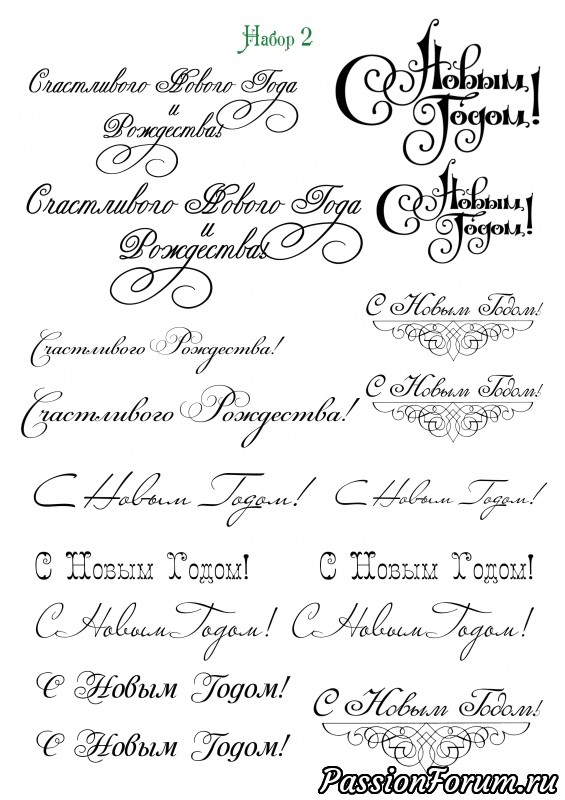 Набор 2
Счастливого Нового Года
и
Рождества!
С Новым
Годом!
Счастливого Нового Года
и
Рождества!
С Новым
Годом!
С Новым Годом!
Счастливого Рождества!
С Новым Годом!
Счастливого Рождества!
С Новым Годом!
С Новым Годом!
С Новым Годом!
С Новым Годом!
С Новым Годом!
С Новым Годом!
С Новым Годом!
С Новым Годом!
С Новым Годом!
PassionForum.ru